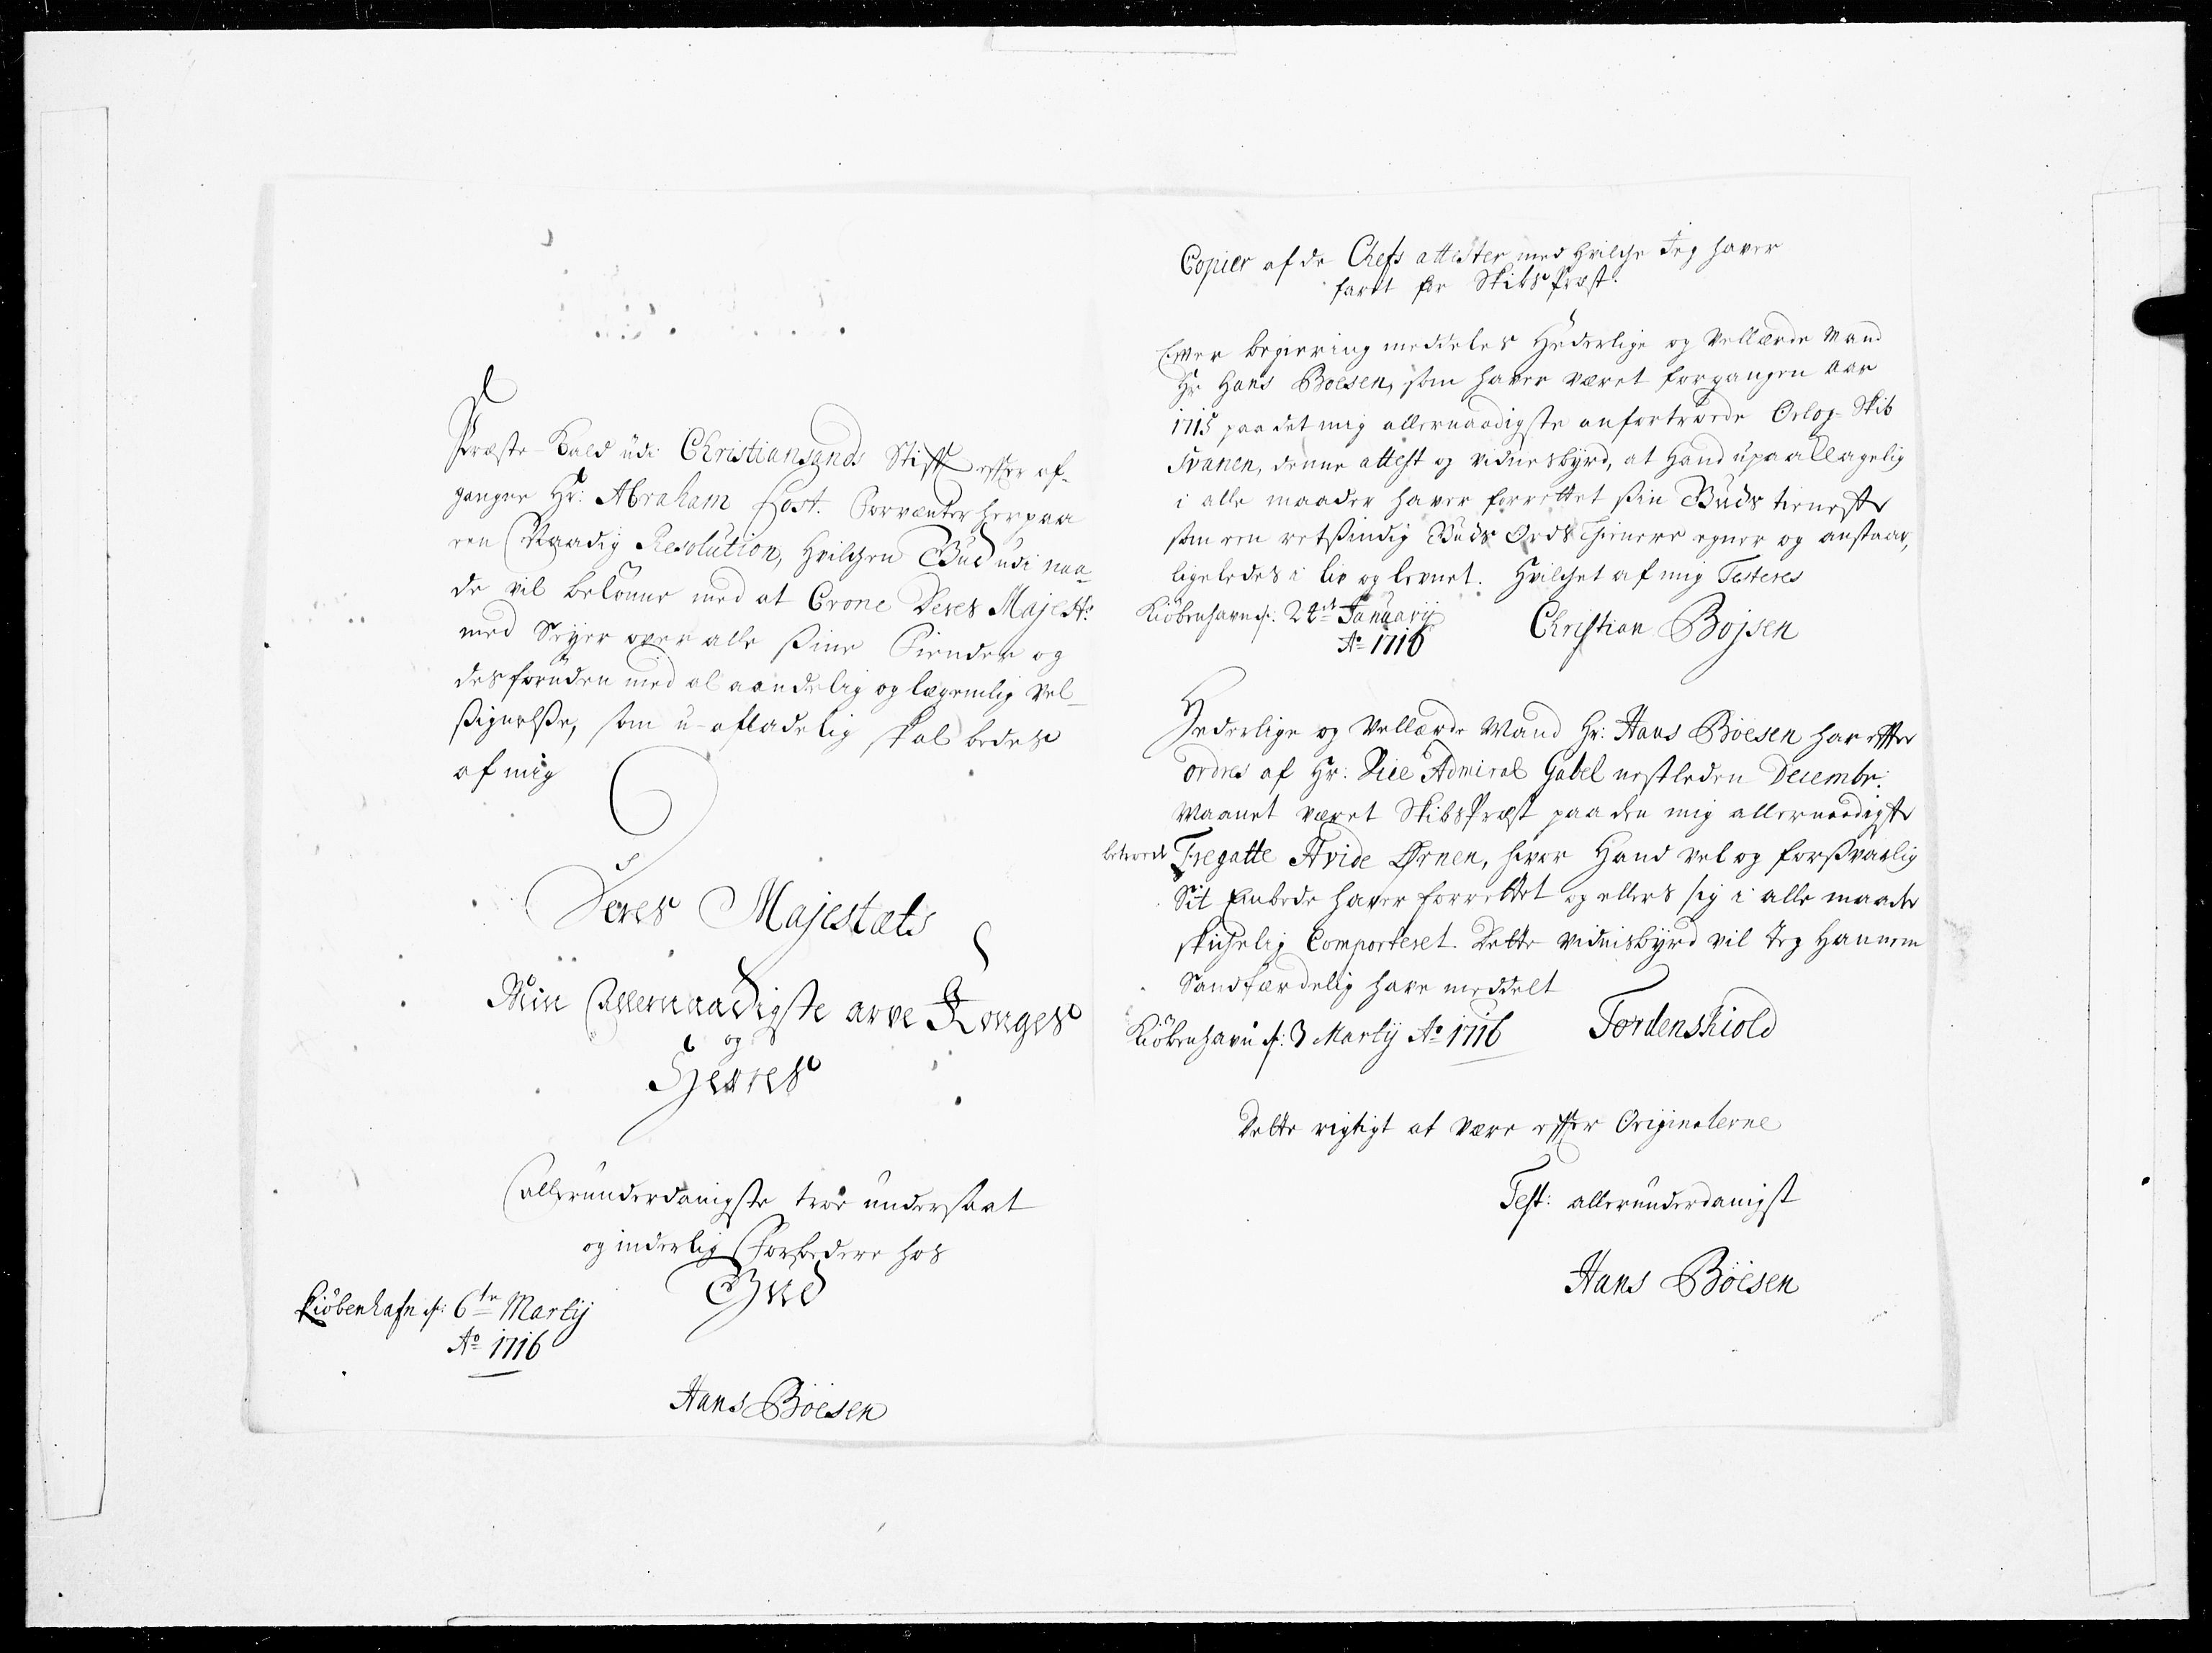 Præste-Kald udi Christiansands Stifft efter af-
gangne Hr: Abraham Fost. Forventer herpaa
een Naadig Resolution, Hvilchen Gud udi naa-
de vil belønne med at Crone Deres Majestt:
med Seyer over alle sine Fiender og
desforuden med al aandelig og legemlig Vel-
signelse, som u-afladelig skal bedes
af mig
Deres Majestæts
Min Allernaadigste arve Konges
og
Herres
allerunderdanigste troe undersaat
og inderlig Forbedere hos
Gud
Kiøbenhafn d: 6te Martij
Ao 1716
Hans Böesen
Copier af de Chefs attester med Hvilche Jeg haver
faret for Skibs Præst.
Efter begiering meddeles Hæderlige og Vellærde Mand
Hr Hans Boesen, som haver været forgangen Aar
1715 paa det mig allernaadigste anfortroede Orlog-Skib
Svanen, denne attest og vidnesbyrd, at Hand upaaklagelig
i alle maader haver forrettet sin Guds tieneste
som een retsindig Guds Ords Thienere egner og anstaar,
ligeledes i liv og levnet. Hvilchet af mig Testeres
Kiöbenhavn d: 24de Januarij
Ao 1716
Christian Bojsen
Hæderlige og Vellærde Mand Hr: Hans Böesen har effter
ordres af Hr: Vice Admiral Gabel nestleden Decembr:
Maanet været Skibs Præst paa den mig allernaadigst
betroede Fregatte Hvide Ørnen, hvor Hand vel og forsvarlig
Sit Embede haver forrettet og ellers sig i alle maade
skichelig Comporteret. Dette vidnisbyrd vil Jeg Hannem
Sandfærdelig have meddelt
Kiöbenhavn d: 3 Martij Ao 1716
Tordenskiold
Dette rigtigt at være effter Originalerne
Test: allerunderdanigst
Hans Böesen